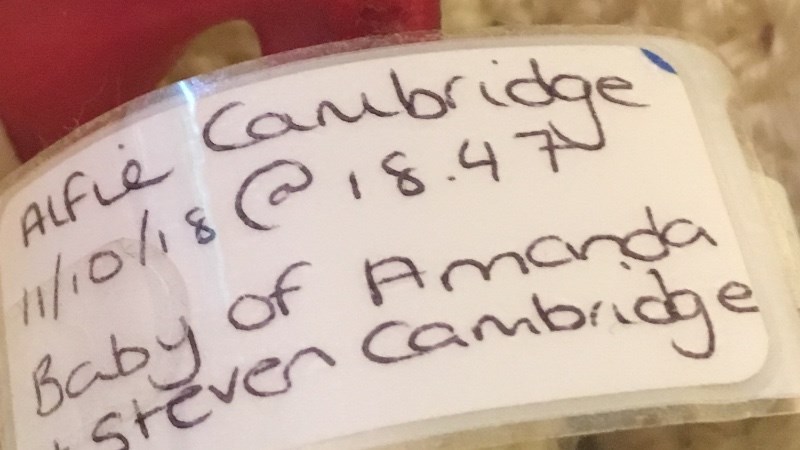 Alfie Cambridge
11/10/18 @ 18.47
Baby of Amanda
+ Steven Cambridge